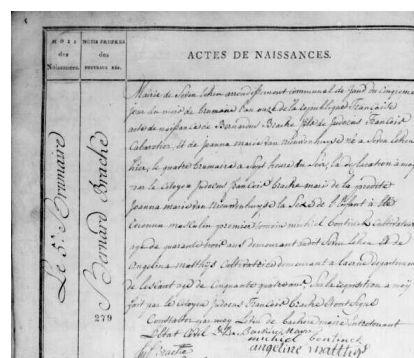 MOIS
des
Naissances.
NOMS PRÉNOMS
des
nouveaux nés.
ACTES DE NAISSANCES.
Le 5.e Brumaire
Bernard Bracke
279
Mairie de arrondissement communal de Gand du Cinquieme
jour du mois de brumaire l'an onze de la republique Française
acte de naissance de Bernardus Bracke fils de Judocus François
Cabaretier, et de Joanna marie van né a
hier, le quatre brumaire a Sept heures du Soir, la déclaration a moy
par le Citoyen Judocus François bracke mari de la predite
Joanna marie van le Sexe de l'Enfant a été
reconnu masculin premier temoin michiel Cultivateur
age de quarante trois ans demeurant a et de
angelina matthys Cultivatrice demeurant a departement
de l'escaut age de Cinquante quatre ans, Sur la requisition a moy
fait par le citoyen Judocus François bracke et ont Signé
Constaté par moy maire fonctionant
l'Etat Civil
michiel
angeline matthys